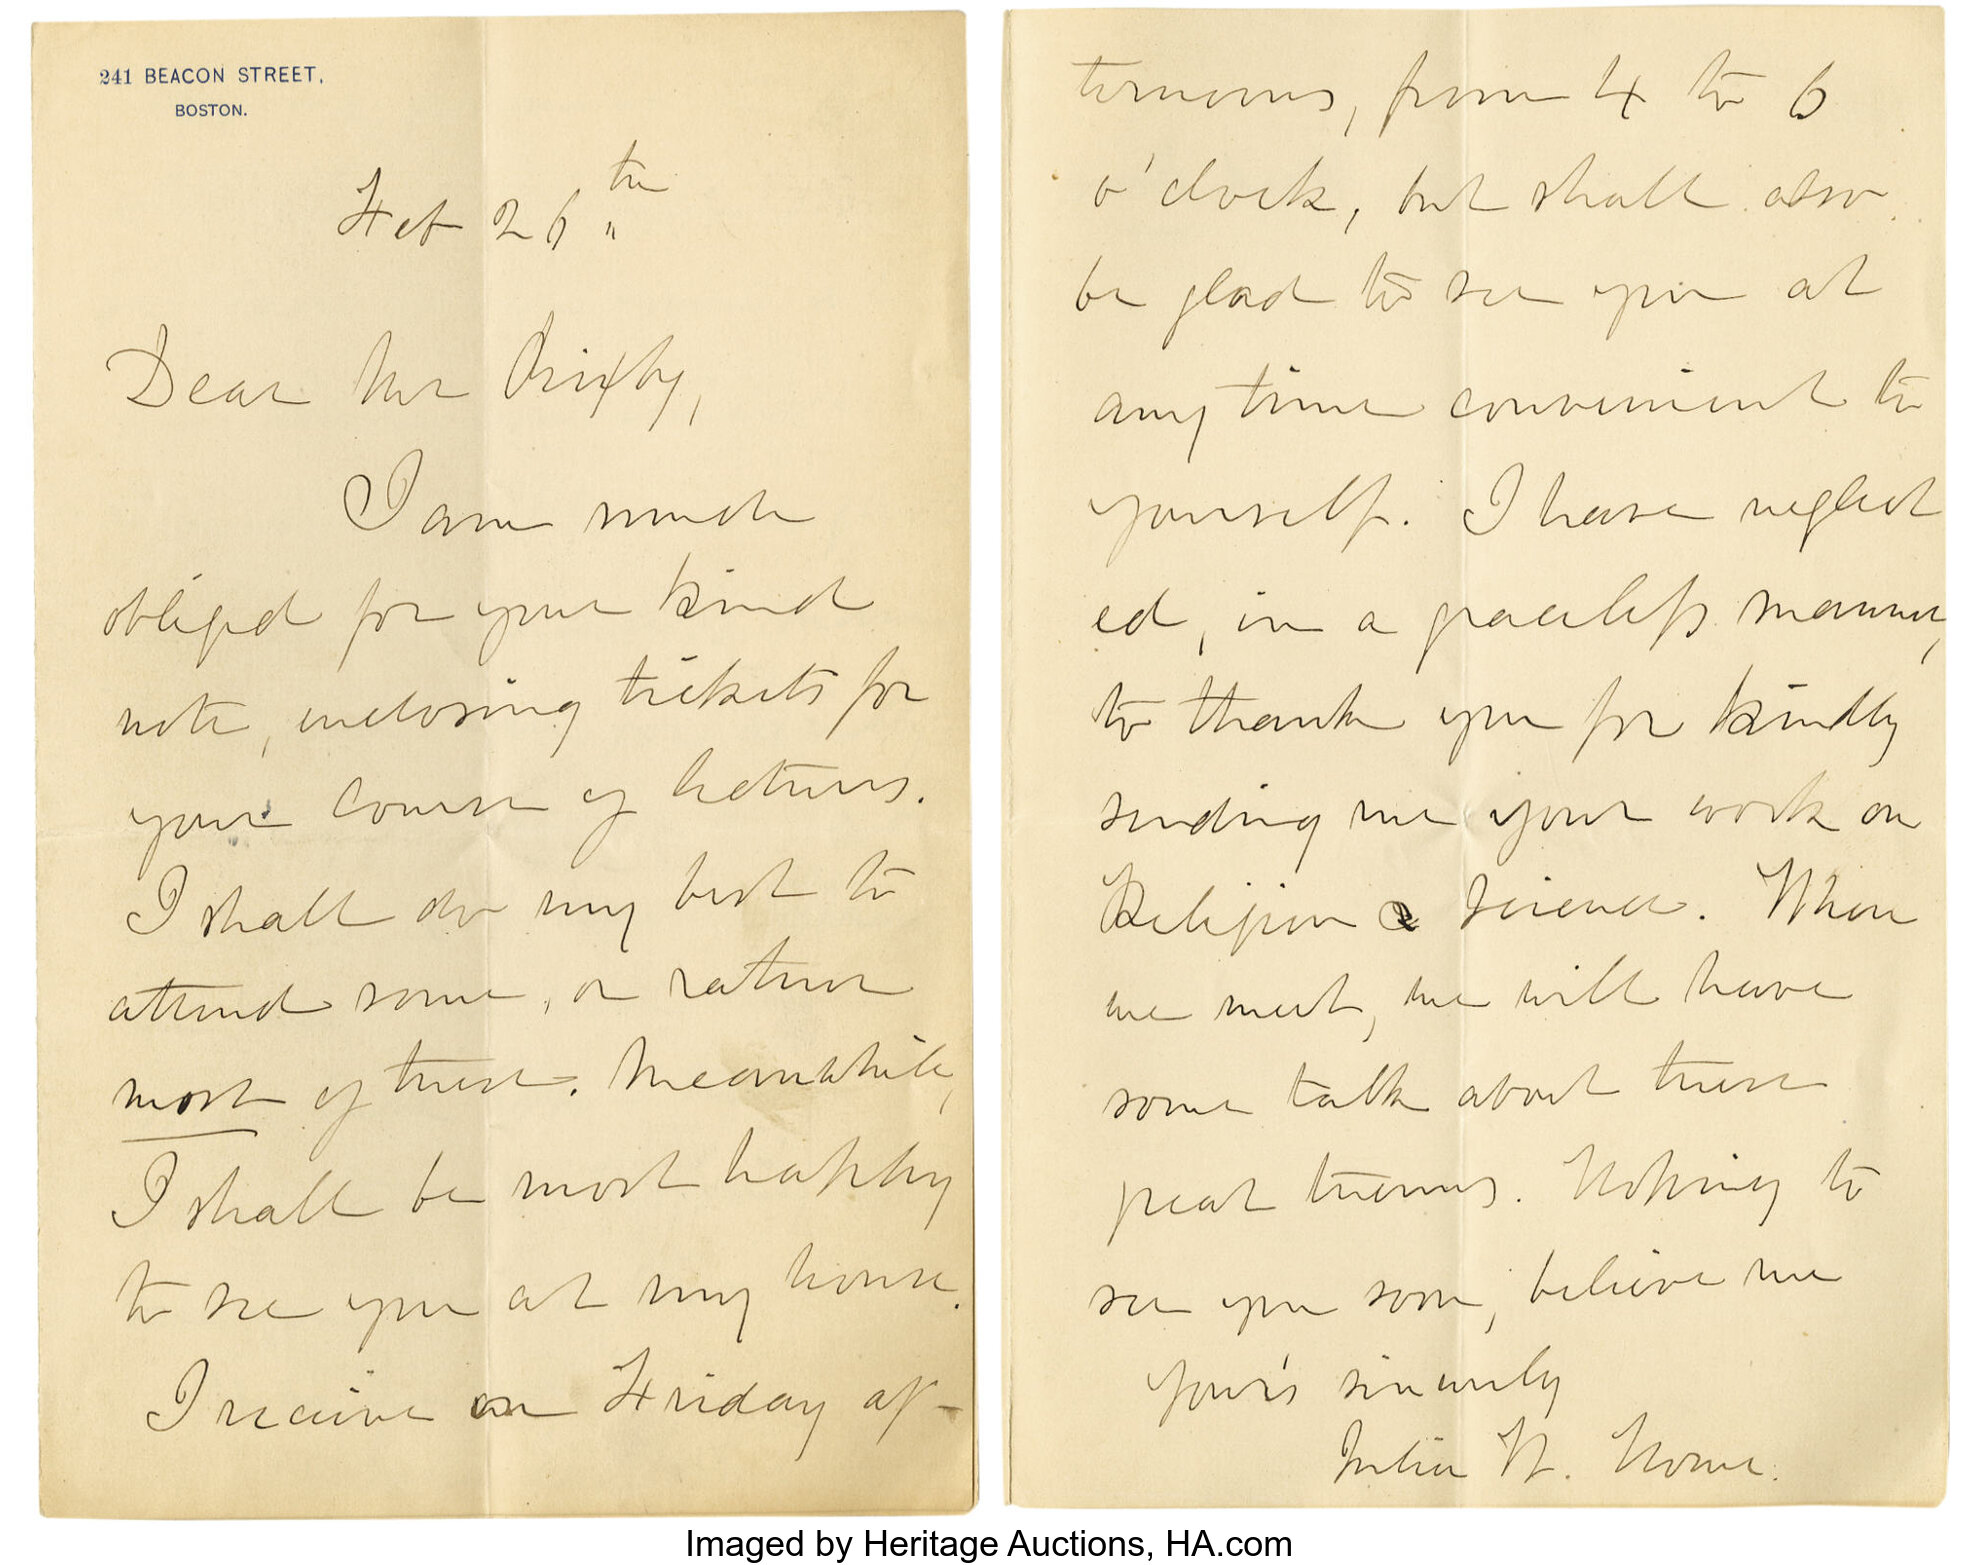 241 BEACON STREET,
BOSTON.
Feb 26th
Dear Mr Bixby,
I am much
obliged for your kind
note, enclosing tickets for
your course of lectures.
I shall do my best to
attend some, or rather
most of these. Meanwhile,
I shall be most happy
to see you at my house.
I receive on Friday af-
ternoons, from 4 to 6
o'clock, but shall also
be glad to see you at
any time convenient to
yourself. I have neglect
ed, in a graceless manner,
to thank you for kindly
sending me your work on
Religion & Science. When
we meet, we will have
some talk about these
great themes. Hoping to
see you soon, believe me
Your's sincerely
Julia W. Howe.
Imaged by Heritage Auctions, HA.com